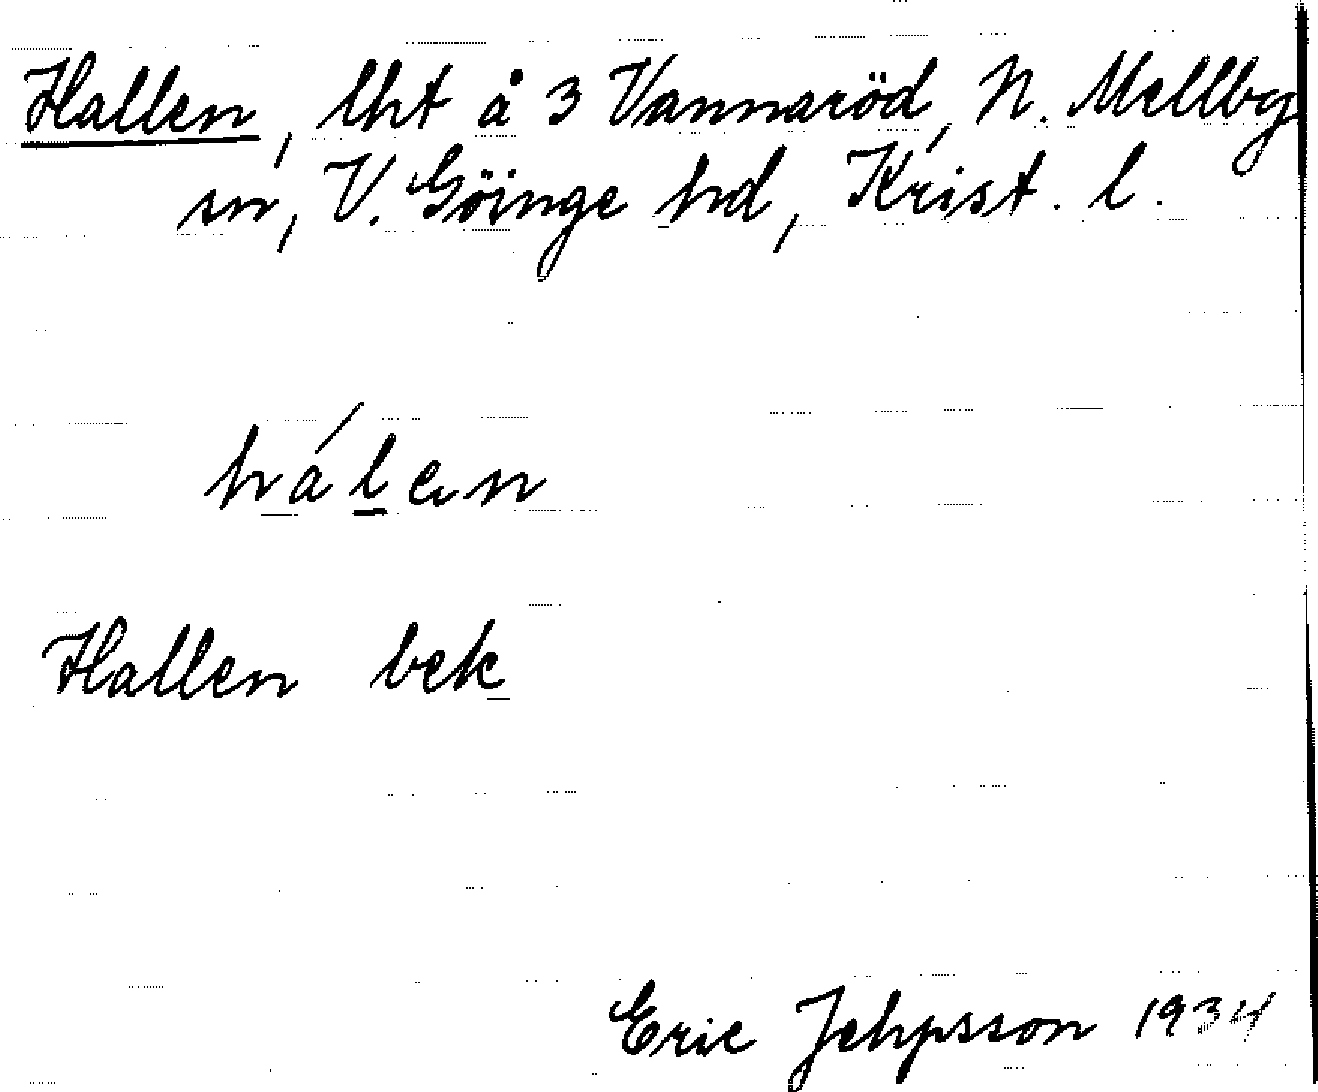 Hallen, lht å 3 Vannaröd, N. Mellby
sn, V. Göinge hd, Krist. l.
hálen
Hallen bek
Eric Jehpsson 1934